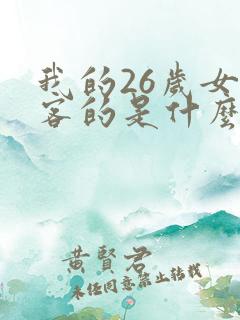 我的26歲女
客的是什麼
黃賢君
未任同意禁止转载